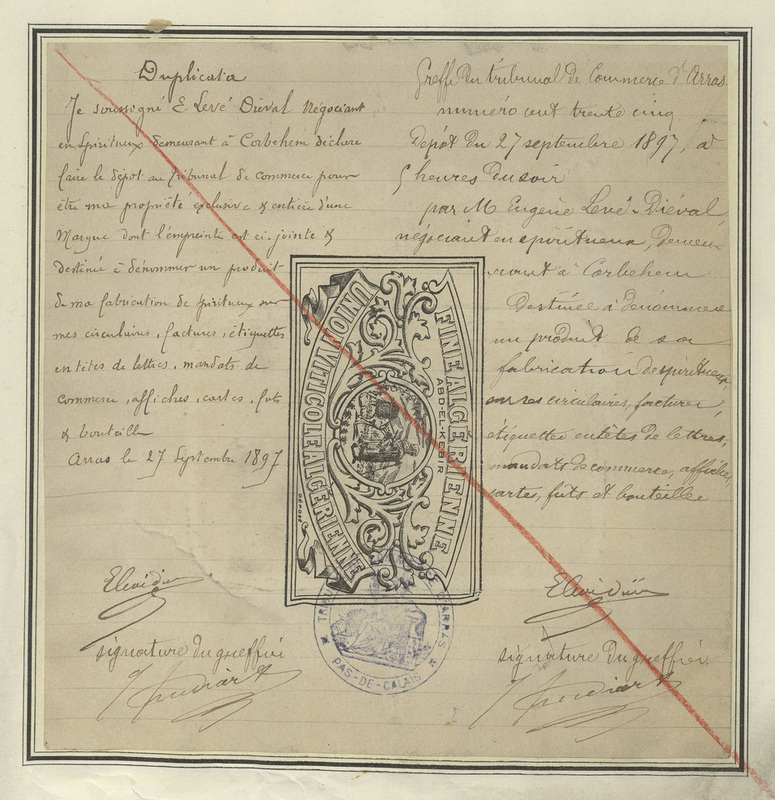 Duplicata
Je soussigné E Levé Diéval Négociant
en Spiritueux demeurant à Corbehem déclare
faire le dépot au Tribunal de commerce pour
être ma propriété exclusive & entière d'une
Marque dont l'empreinte est ci-jointe &
destiné à dénommer un produit
de ma fabrication de spiritueux sur
mes circulaires, factures, étiquettes
entêtes de lettres, mandats de
commerce, affiches, cartes, futs
& bouteilles
Arras le 27 Septembre 1897
signature du greffier
Greffe du tribunal de Commerce d'Arras
numéro cent trente cinq
Dépôt du 27 septembre 1897, à
5 heures du soir
par M Eugène Levé-Diéval
négociant en spiritueux, demeu-
rant à Corbehem
Destinée à dénommer
un produit de sa
fabrication de spiritueux,
sur ses circulaires, factures,
étiquettes entêtes de lettres,
mandats de commerce, affiches,
cartes, futs et bouteilles
signature du greffier
UNION VITICOLE ALGÉRIENNE
FINE ALGÉRIENNE
ABD-EL-KEBIR
DÉPOSÉ
D'ARRAS
PAS-DE-CALAIS